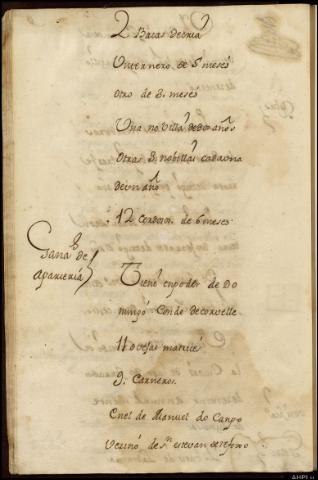 2 Bacas de cria
Un ternero de 5 meses
Otro de 3. meses
Una novilla de dos años
Otras 3 nobillas cada una
de un año
12 Corderos. de 6 meses.
Ganado de
aparceria
Tiene en poder de Do
mingo Conde de corvelle
11 ovejas
9. Carneros.
En el de Manuel do Canpo
Vecino de Sn estevan de
AHPL